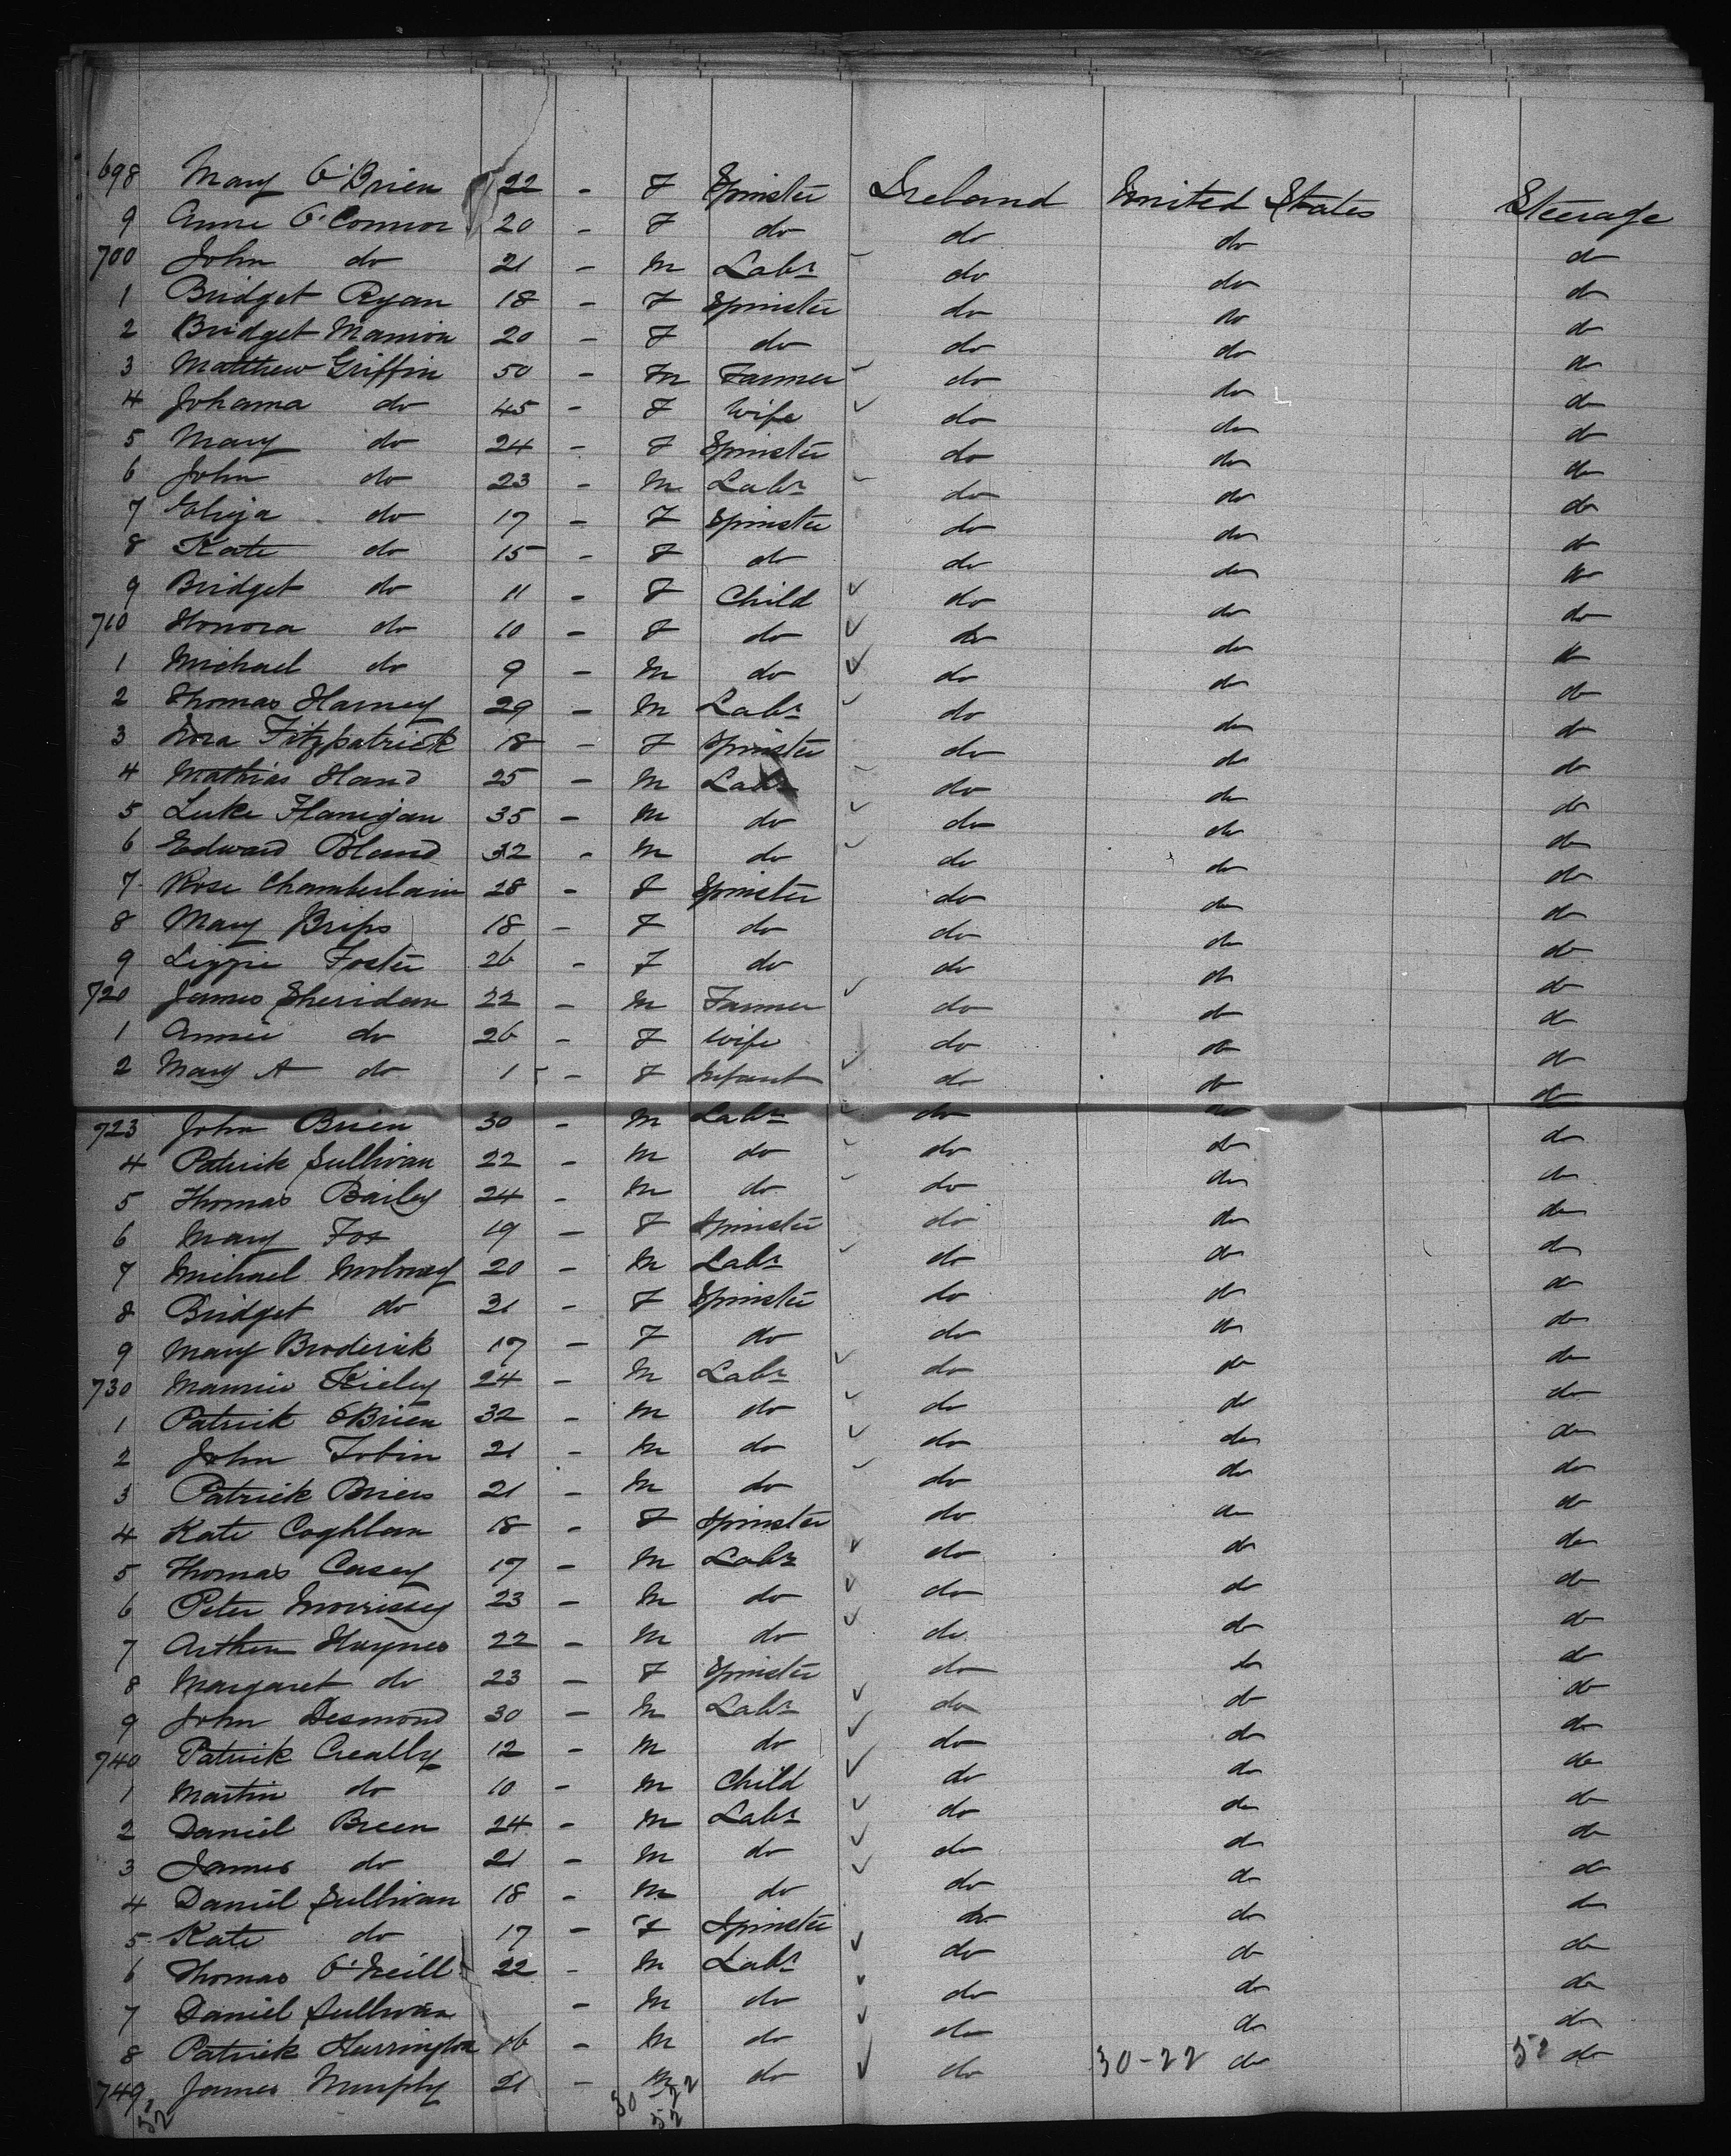 698 Mary O'Brien 22 - F Spinster Ireland United States Steerage
9 Anne O'Connor 20 - F do do do do
700 John do 21 - M Labr do do do
1 Bridget Ryan 18 - F Spinster do do do
2 Bridget Mannion 20 - F do do do do
3 Matthew Griffin 50 - M Farmer do do do
4 Johanna do 45 - F Wife do do do
5 Mary do 24 - F Spinster do do do
6 John do 23 - M Labr do do do
7 Eliza do 17 - F Spinster do do do
8 Kate do 15 - F do do do do
9 Bridget do 11 - F Child do do do
710 Honora do 10 - F do do do do
1 Michael do 9 - M do do do do
2 Thomas Harney 29 - M Labr do do do
3 Nora Fitzpatrick 18 - F Spinster do do do
4 Mathias Hand 25 - M Labr do do do
5 Luke Flanigan 35 - M do do do do
6 Edward Bland 32 - M do do do do
7 Rose Chamberlain 28 - F Spinster do do do
8 Mary 18 - F do do do do
9 Lizzie Foster 26 - F do do do do
720 James Sheridan 22 - M Farmer do do do
1 Annie do 26 - F Wife do do do
2 Mary A do 1 - F Infant do do do
723 John Brien 30 - M Labr do do do
4 Patrick Sullivan 22 - M do do do do
5 Thomas Bailey 24 - M do do do do
6 Mary Fox 19 - F Spinster do do do
7 Michael Moloney 20 - M Labr do do do
8 Bridget do 21 - F Spinster do do do
9 Mary Broderick 17 - F do do do do
730 Maurice Kieley 24 - M Labr do do do
1 Patrick O'Brien 32 - M do do do do
2 John Tobin 21 - M do do do do
3 Patrick Brien 21 - M do do do do
4 Kate Coghlan 18 - F Spinster do do do
5 Thomas Casey 17 - M Labr do do do
6 Peter Morrissey 23 - M do do do do
7 Arthur Haynes 22 - M do do do do
8 Margaret do 23 - F Spinster do do do
9 John Desmond 30 - M Labr do do do
740 Patrick Creally 12 - M do do do do
1 Martin do 10 - M Child do do do
2 Daniel Breen 24 - M Labr do do do
3 James do 21 - M do do do do
4 Daniel Sullivan 18 - M do do do do
5 Kate do 17 - F Spinster do do do
6 Thomas O'Neill 22 - M Labr do do do
7 Daniel Sullivan - M do do do do
8 Patrick Harrington 16 - M do do do do
749 James Murphy 21 - M do do 30-22 do 52 do
52 30 22
52